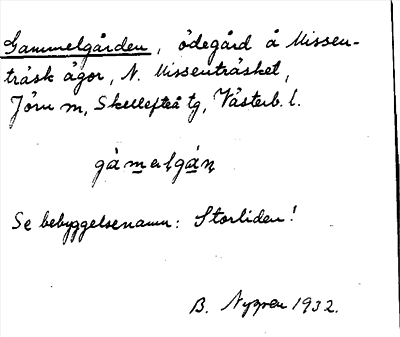 Gammelgården, ödegård å Missen-
träsk ägor, N. Missenträsket,
Jörn sn, Skellefteå tg, Västerb. l.
gàmalgán
Se bebyggelsenamn: Storliden!
B. Nygren 1932.